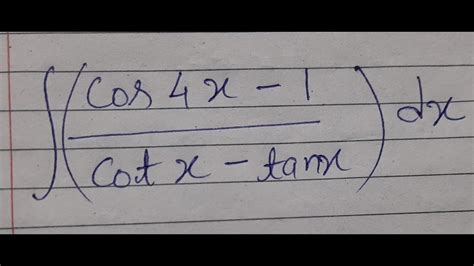 ∫(cos 4x - 1 / cot x - tanx) dx